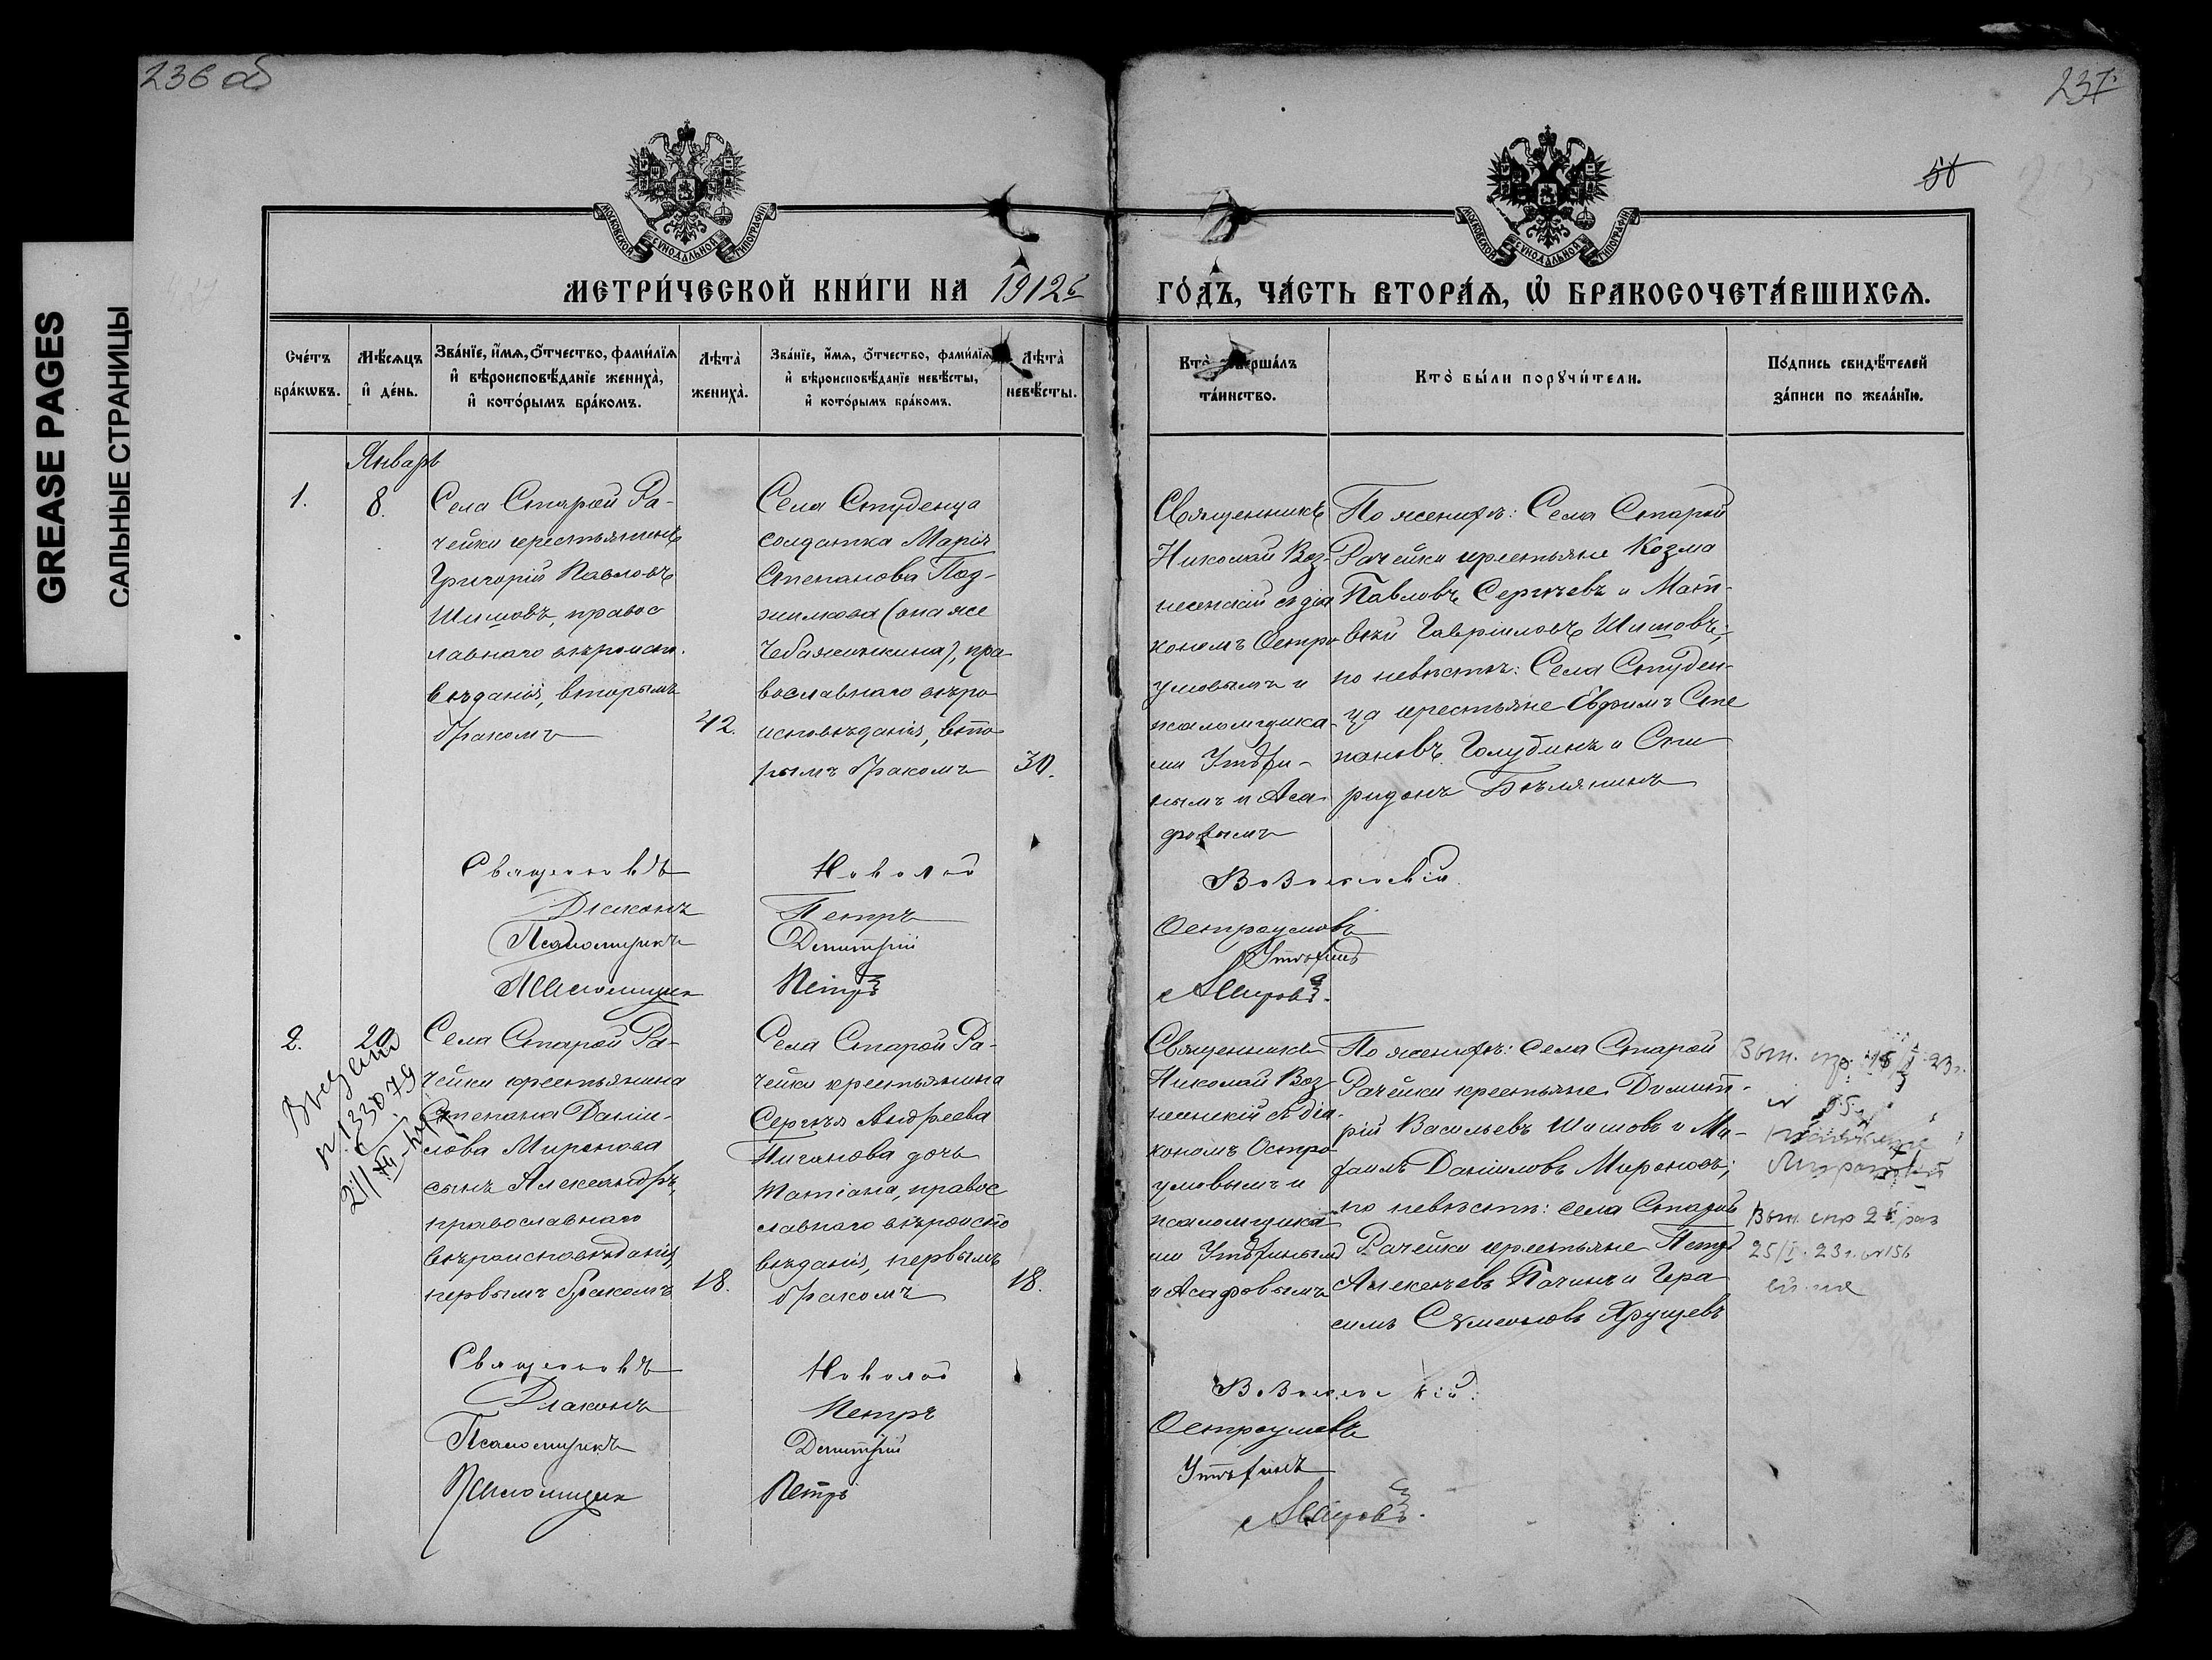 236 об
237
58
GREASE PAGES
САЛЬНЫЕ СТРАНИЦЫ
МОСКОВСКОЙ СѴНОДАЛЬНОЙ ТИПОГРАФІИ
МОСКОВСКОЙ СѴНОДАЛЬНОЙ ТИПОГРАФІИ
МЕТРИ́ЧЕСКОЙ КНИ́ГИ НА 1912й
ГО́ДЪ, ЧА́СТЬ ВТОРА́Ѧ, Ѽ БРАКОСОЧЕТА́ВШИХСѦ.
Сче́тъ бра́кѡвъ.
Мѣ́сѧцъ и҆ де́нь.
Зва́нїе, и҆́мѧ, ѻ҆́тчество, фами́лїѧ и҆ вѣроисповѣ́данїе жениха̀, и҆ кото́рымъ бра́комъ.
Лѣта̀ жениха̀.
Зва́нїе, и҆́мѧ, ѻ҆́тчество, фами́лїѧ и҆ вѣроисповѣ́данїе невѣ́сты, и҆ кото́рымъ бра́комъ.
Лѣта̀ невѣ́сты.
Кто̀ соверша́лъ та́инство.
Кто̀ бы́ли порꙋчи́тели.
По́дпись свидѣ́телей за́писи по жела́нїю.
Январь
1.
8.
Села Старой Ра-
чейки крестьянинъ
Григорій Павловъ
Шишовъ, правос
лавнаго вѣроиспо-
вѣданія, вторымъ
бракомъ
42.
Села Студенца
солдатка Марія
Степанова Поз-
(она же
пра-
вославнаго вѣро
исповѣданія, вто
рымъ бракомъ
30.
Священникъ
Николай Воз-
несенскій съ діа
кономъ Остро
умовымъ и
псаломщика
ми Утѣхи-
нымъ и Аса-
фовымъ
По женихѣ: Села Старой
Рачейки крестьяне Козма
Павловъ Сергѣевъ и Мат-
вѣй Гавріиловъ Шишовъ;
по невѣстѣ: Села Студен-
ца крестьяне Евфимъ Сте
пановъ Голубинъ и Спи
ридонъ Бѣлянинъ
Священникъ Николай Вознесенскій
Діаконъ Петръ Остроумовъ
Псаломщикъ Димитрій Утѣхинъ
Псаломщик Петръ Асафовъ.
2.
20
Села Старой Ра-
чейки крестьянина
Степана Даніи-
лова Миронова
сынъ Александръ,
православнаго
вѣроисповѣданія,
первымъ бракомъ
18.
Села Старой Ра-
чейки крестьянина
Сергѣя Андреева
Пиганова дочь
Татіана, правос
лавнаго вѣроиспо
вѣданія, первымъ
бракомъ
18.
Священникъ
Николай Воз
несенскій съ діа-
кономъ Остро
умовымъ и
псаломщика
ми Утѣхинымъ
и Асафовымъ
По женихѣ: села Старой
Рачейки крестьяне Димит-
рій Васильевъ Шишовъ и Ма-
Даніиловъ Мироновъ;
по невѣстѣ: села Старой
Рачейки крестьяне Петръ
Алексѣевъ Пачинъ и Гера
симъ Симеоновъ Хрущевъ
Вып. спр.
Вып. спр 2й раз
25/I 23 г. №156
Священникъ Николай Вознесенскій
Діаконъ Петръ Остроумовъ
Псаломщикъ Димитрій Утѣхинъ
Псаломщик Петръ Асафовъ.